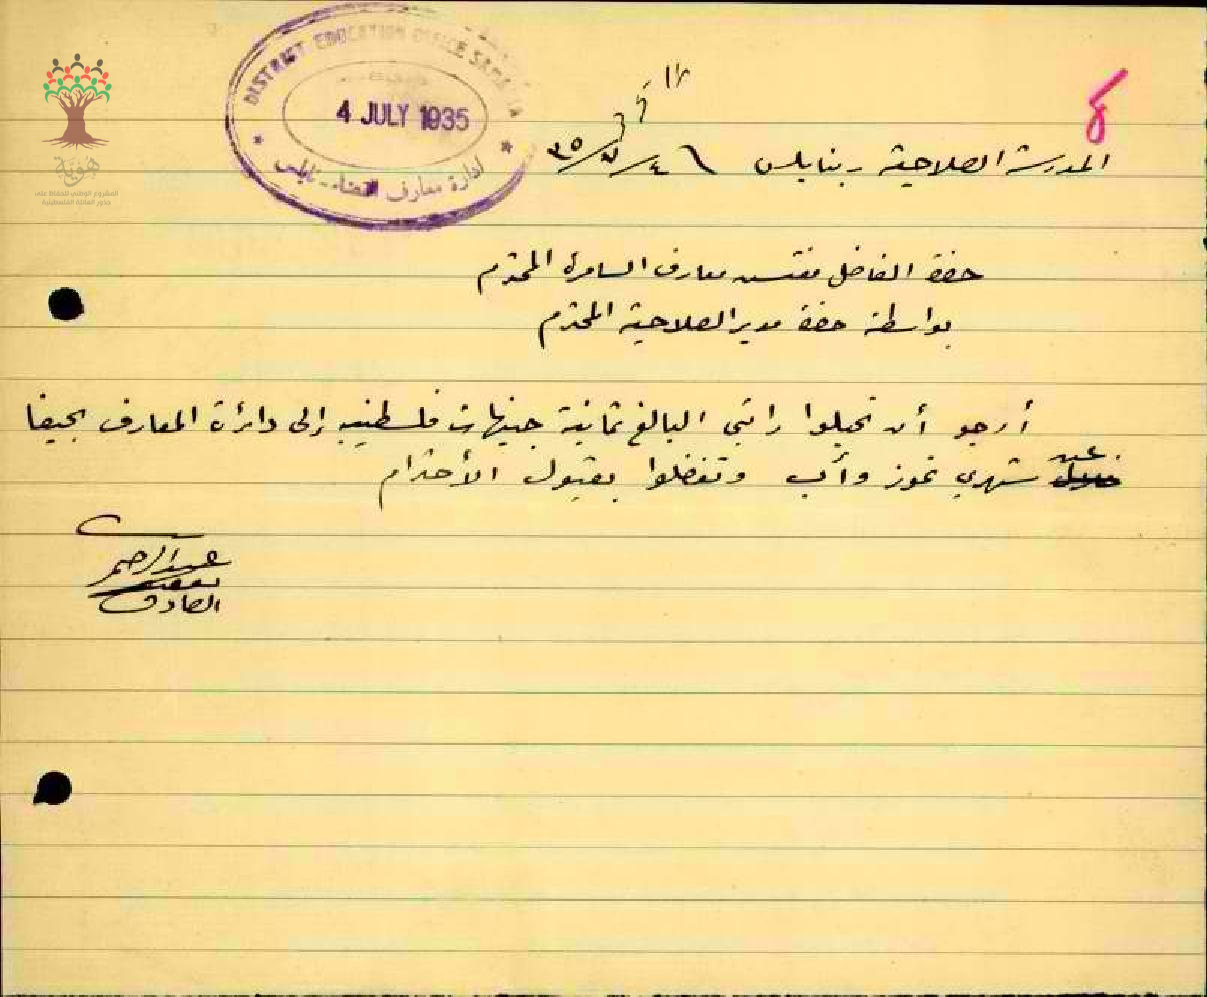 DISTRICT EDUCATION OFFICE SAMARIA
4 JULY 1935
ادارة معارف قضاء نابلس
هوية
المشروع الوطني للحفاظ على
جذور العائلة الفلسطينية
المدرسة الصلاحية بنابلس ٤/٧/٣٥
حضرة الفاضل مفتش معارف السامرة المحترم
بواسطة حضرة مدير الصلاحية المحترم
أرجو أن تحيلوا راتبي البالغ ثمانية جنيهات فلسطينية إلى دائرة المعارف بحيفا
عن شهري تموز وآب وتفضلوا بقبول الأحترام
عبد الرحيم
الصادق